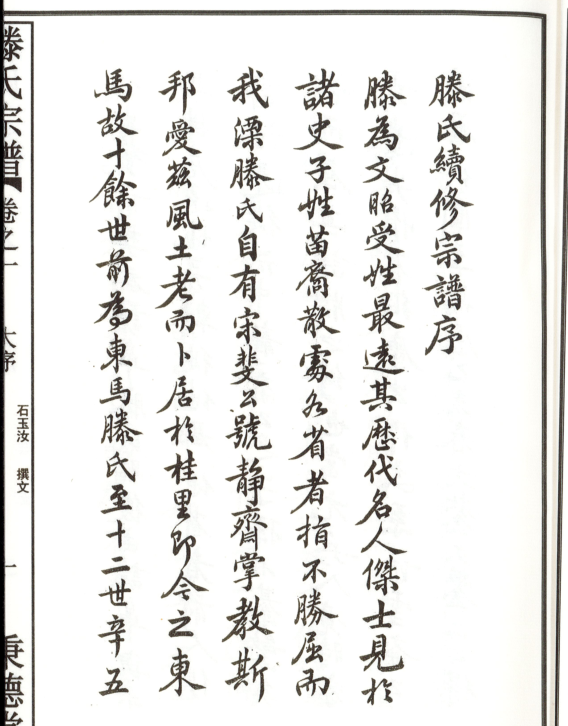 滕氏續修宗譜序
滕為文昭受姓最遠其歷代名人傑士見於
諸史子姓苗裔散處各省者指不勝屈而
我溧滕氏自有宋斐公號靜齋掌教斯
邦愛茲風土老而卜居於桂里即今之東
馬故十餘世前為東馬滕氏至十二世辛五
滕氏宗譜 卷之一 大序 一 秉德堂
石玉汝 撰文